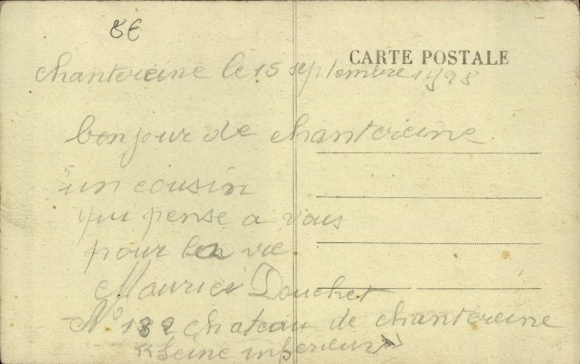 8€
CARTE POSTALE
chantereine le 15 septembre 1928
bonjour de chantereine
un cousin
qui pense a vous
pour la vie
Maurice Douchet
N° 132 chateau de chantereine
Seine inferieur